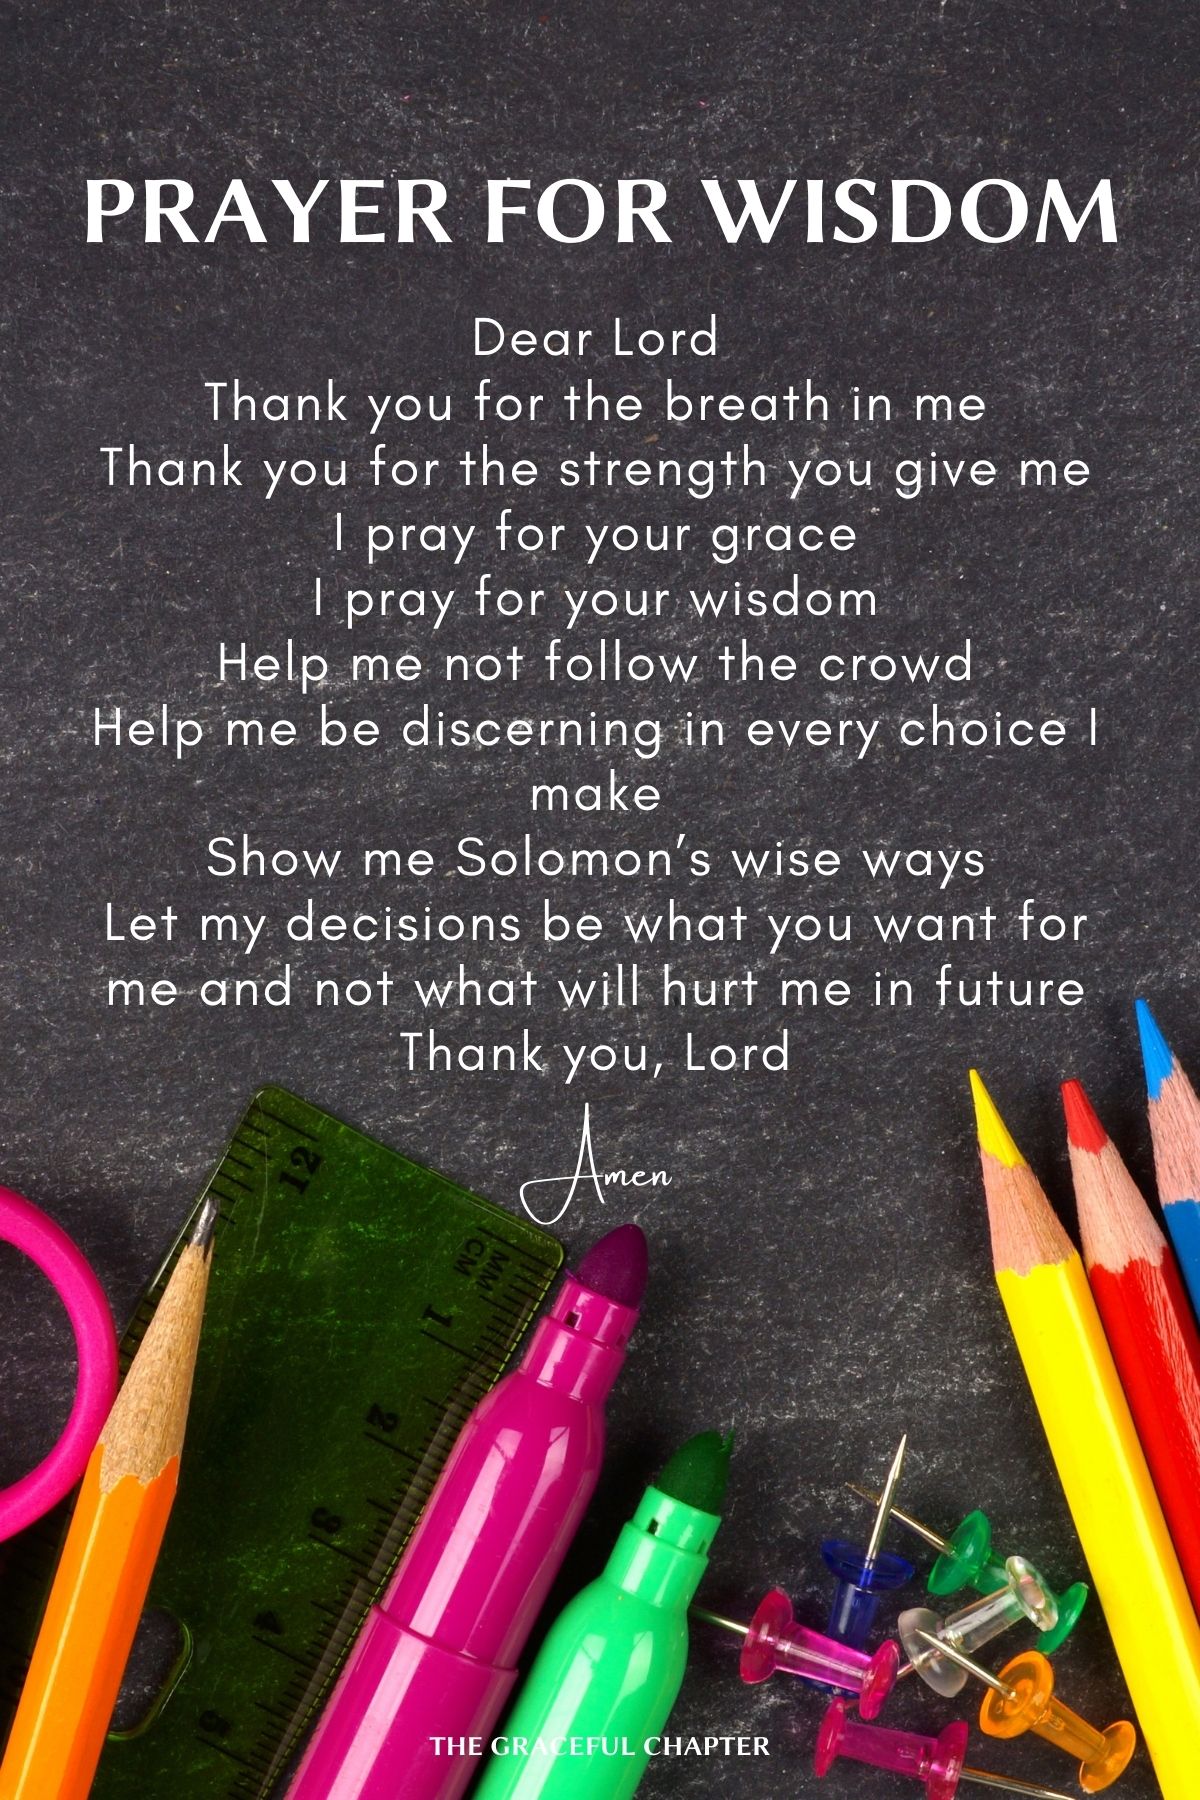 PRAYER FOR WISDOM
Dear Lord
Thank you for the breath in me
Thank you for the strength you give me
I pray for your grace
I pray for your wisdom
Help me not follow the crowd
Help me be discerning in every choice I
make
Show me Solomon's wise ways
Let my decisions be what you want for
me and not what will hurt me in future
Thank you, Lord
Amen
12
MM
CM
1
2
3
4
5
THE GRACEFUL CHAPTER